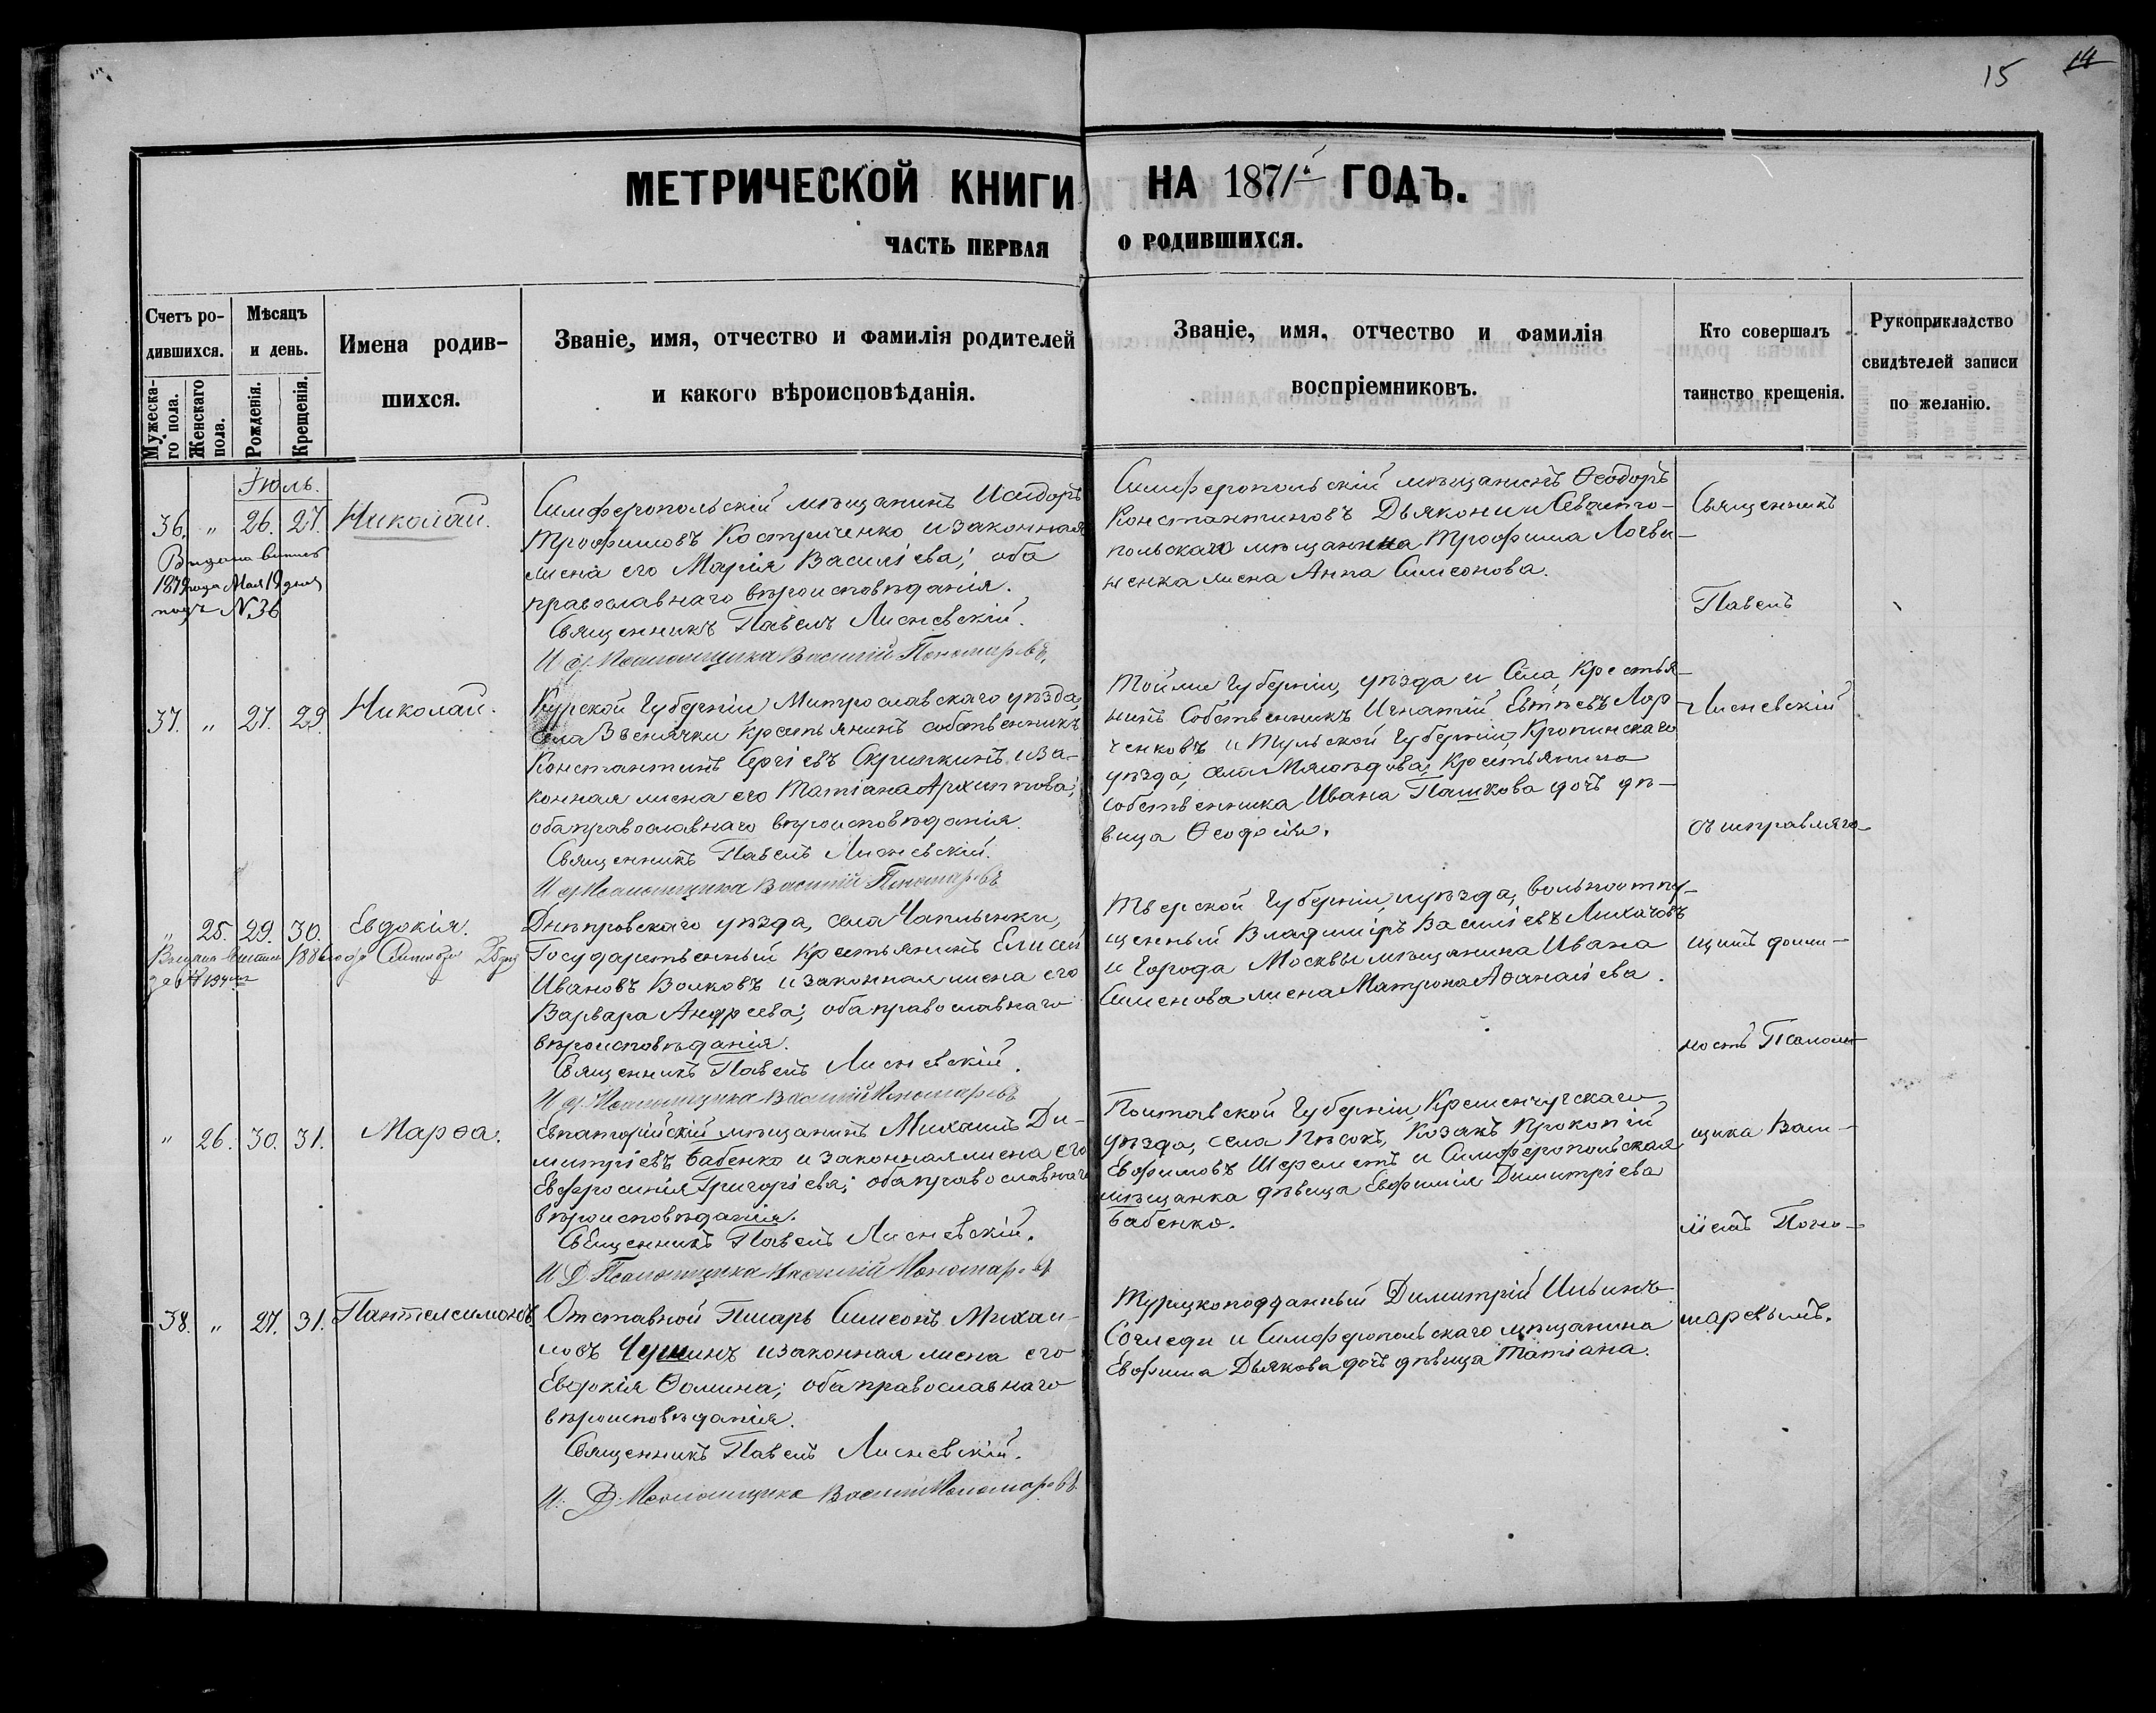 15 14
МЕТРИЧЕСКОЙ КНИГИ НА 1871й ГОДЪ.
ЧАСТЬ ПЕРВАЯ О РОДИВШИХСЯ.
Счетъ ро-
дившихся.
Мужеска-
го пола.
Женскаго
пола.
Мѣсяцъ
и день.
Рожденія.
Крещенія.
Имена родив-
шихся.
Званіе, имя, отчество и фамилія родителей
и какого вѣроисповѣданія.
Званіе, имя, отчество и фамилія
воспріемниковъ.
Кто совершалъ
таинство крещенія.
Рукоприкладство
свидѣтелей записи
по желанію.
Іюль.
36. " 26. 27. Николай.
Выдана выпись
1879 года Мая 19 дня
подъ N. 36
Симферопольскій мѣщанинъ Исидоръ
Трофимовъ Костриченко и законная
жена его Марія Василіева; оба
православнаго вѣроисповѣданія.
Священникъ Павелъ Лисневскій.
И д. Псаломщика Василій Пономаревъ.
Симферопольскій мѣщанинъ Ѳеодоръ
Константиновъ Дьякони и Севасто-
польскаго мѣщанина Трофима Логви-
ненка жена Анна Симеонова.
37. " 27. 29. Николай.
Курской Губерніи, Митрославскаго уѣзда
Села Крестьянинъ собственникъ
Константинъ Сергіевъ Скрипкинъ и за-
конная жена его Татіана Архиппова;
оба православнаго вѣроисповѣданія.
Священникъ Павелъ Лисневскій.
И д. Псаломщика Василій Пономаревъ
Той же Губерніи, уѣзда и Села, Крестья-
нинъ Собственникъ Игнатій Евтѣевъ Лор-
ченковъ и Тульской Губерніи, Кропинскаго
уѣзда, села Мясоѣдова, Крестьянина
собственника Ивана Пашкова дочь дѣ-
вица Ѳеодосія.
" 25. 29. 30. Евдокія.
Выдана выпись 1886 года
Днѣпровскаго уѣзда, села Чаплынки,
Государственный Крестьянинъ Елисей
Ивановъ Волковъ и законная жена его
Варвара Андреева; оба православнаго
вѣроисповѣданія.
Священникъ Павелъ Лисневскій.
И д. Псаломщика Василій Пономаревъ
Тверской Губерніи, и уѣзда, вольноотпу-
щенный Владиміръ Василіевъ Лихачовъ
и Города Москвы мѣщанина Ивана
Симеонова жена Матрона Аѳанасіева.
" 26. 30. 31. Марѳа.
Евпаторійскій мѣщанинъ Михаилъ Ди-
митріевъ Бабенко и законная жена его
Евфросинія Григоріева; оба православнаго
вѣроисповѣданія.
Священникъ Павелъ Лисневскій.
И. Д. Псаломщика Василій Пономаревъ
Полтавской Губерніи, Кременчугскаго
уѣзда, села Пѣсокъ, Козакъ Прокопій
Евфимовъ Шереметъ и Симферопольская
мѣщанка дѣвица Евфимія Димитріева
Бабенко.
38. " 27. 31. Пантелеимонъ.
Отставной Писарь Симеонъ Михаи-
ловъ Чушинъ и законная жена его
Евдокія Ѳомина; оба православнаго
вѣроисповѣданія.
Священникъ Павелъ Лисневскій.
И. Д. Псаломщика Василій Пономаревъ.
Турецкоподданный Димитрій Ильинъ
и Симферопольскаго мѣщанина
Евфима Дьякова дочь дѣвица Татіана.
Священникъ
Павелъ
Лисневскій
съ исправляю-
щимъ долж-
ность Псалом-
щика Васи-
ліемъ Поно-
маревымъ.